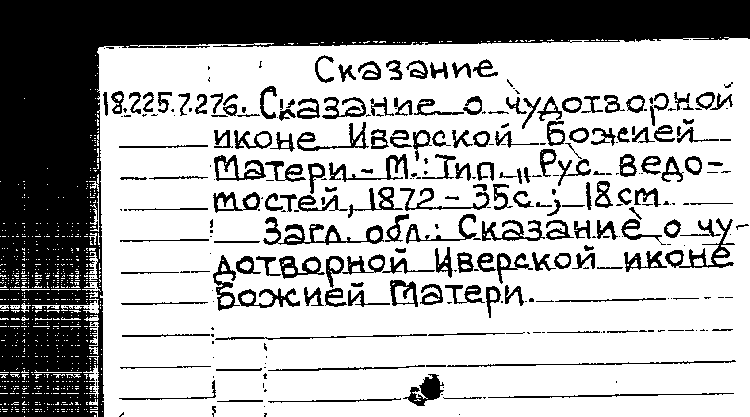 Сказание
18.225.7.276. Сказание о чудотворной
иконе Иверской Божией
Матери. - М.: Тип. „Рус. ведо-
мостей, 1872 - 35с.; 18см.
Загл. обл.: Сказание о чу-
дотворной Иверской иконе
Божией Матери.